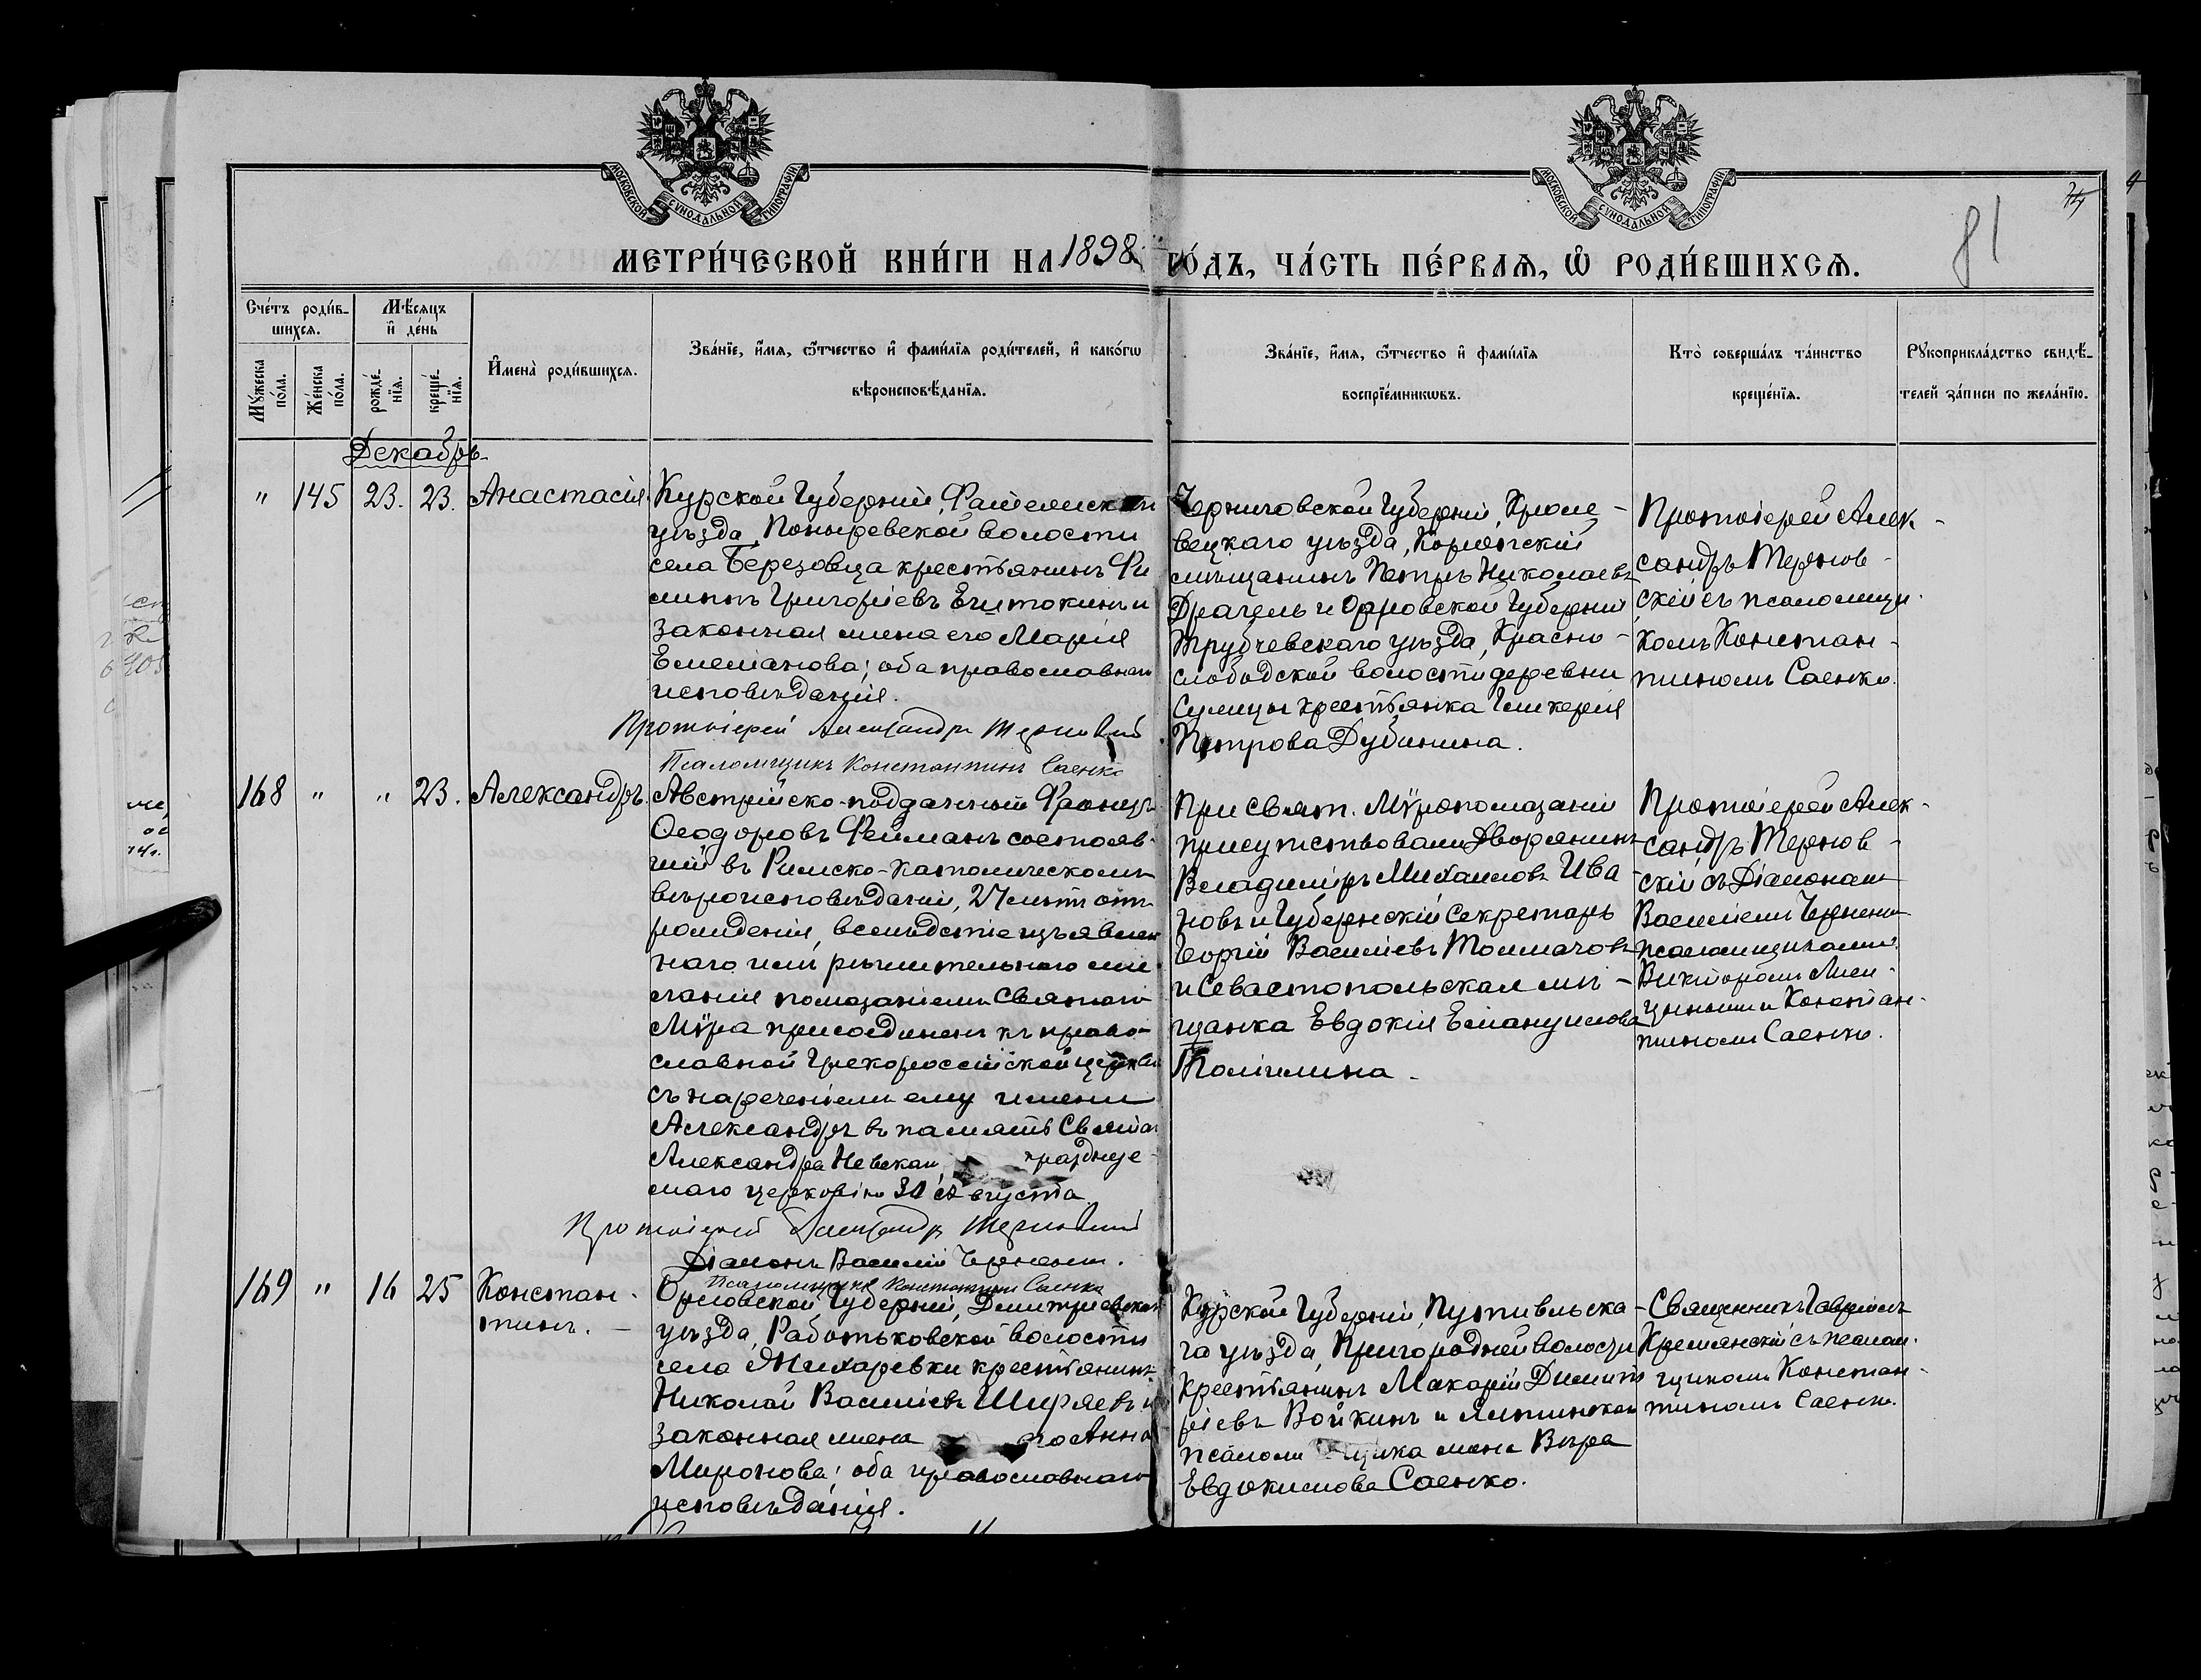 МОСКОВСКОЙ СУНОДАЛЬНОЙ ТИПОГРАФІИ
МОСКОВСКОЙ СУНОДАЛЬНОЙ ТИПОГРАФІИ
81
МЕТРИ́ЧЕСКОЙ КНИ́ГИ НА 1898 ГО́ДЪ, ЧА́СТЬ ПЕ́РВАѦ, Ѡ РОДИ́ВШИХСѦ.
Сче́тъ роди́в-
шихсѧ.
Мѣ́сѧцъ
и҆ де́нь
Мꙋ́жеска
по́ла.
Же́нска
по́ла.
рожде́-
нїѧ.
креще́-
нїѧ.
И҆мена̀ роди́вшихсѧ.
Зва́нїе, и҆́мѧ, ѻ҆́тчество и҆ фами́лїѧ роди́телей, и҆ како́гѡ
вѣроисповѣ́данїѧ.
Зва́нїе, и҆́мѧ, ѻ҆́тчество и҆ фами́лїѧ
воспрїе́мникѡвъ.
Кто̀ соверша́лъ та́инство
креще́нїѧ.
Рꙋкоприкла́дство свидѣ́-
телей за́писи по жела́нїю.
Декабрь
" 145 23. 23. Анастасія
Курской Губерніи, Фатежскаго
уѣзда, Поныревской волости
села Березовца крестьянинъ Фи
липпъ Григоріевъ и
законная жена его Марія
Емеліанова; оба православнаго
исповѣданія.
Протоіерей Александръ Терновскій
Псаломщикъ Константинъ Саенко
Черниговской Губерніи, Кроле-
вецкаго уѣзда, Коропскій
мѣщанинъ Петръ Николаевъ
Драгель и Орловской Губерніи
Трубчевскаго уѣзда, Красно-
слободской волости деревни
крестьянка Гликерія
Петрова Дубинина.
Протоіерей Алек-
сандръ Тернов-
скій съ псаломщи-
комъ Констан-
тиномъ Саенко.
168 " " 23. Александръ.
Австрійско-подданный Францъ
Ѳеодоровъ Фейманъ состояв-
шій въ Римско-Католическомъ
вѣроисповѣданіи, 27 лѣтъ отъ
рожденія, вслѣдствіе изъявлен
наго имъ рѣшительнаго же-
ланія помазаніемъ Святаго
Мѵра присоединенъ къ право-
славной Грекороссійской церкви
съ нареченіемъ ему имени
Александръ въ память Свята.
Александра Невскаго, празднуе-
маго церковію 30 Августа
Протоіерей Александръ Терновскій
Діаконъ Василій
Псаломщикъ Константинъ Саенко
При Свят. Мѵропомазаніи
присутствовали Дворянинъ
Владиміръ Михаиловъ Ива-
новъ и Губернскій Секретарь
Георгій Василіевъ Толмачовъ
и Севастопольская мѣ-
щанка Евдокія Емануилова
Протоіерей Алек-
сандръ Тернов-
скій съ Діакономъ
Василіемъ
псаломщиками
Викторомъ
и Констан-
тиномъ Саенко.
169 " 16 25 Констан-
тинъ. -
Орловской Губерніи, Димитріевскаго
уѣзда, Работьковской волости
села Жихаревки крестьянинъ
Николай Василіевъ Ширяевъ и
законная жена его Анна
Миронова; оба православнаго
исповѣданія.
Курской Губерніи, Путивльска-
га уѣзда, Пригородней волости
Крестьянинъ Макарій Димит
ріевъ Войкинъ и
псаломщика жена Вѣра
Евдокимова Саенко.
Священникъ Гавріилъ
съ псалом-
щикомъ Констан-
тиномъ Саенко.